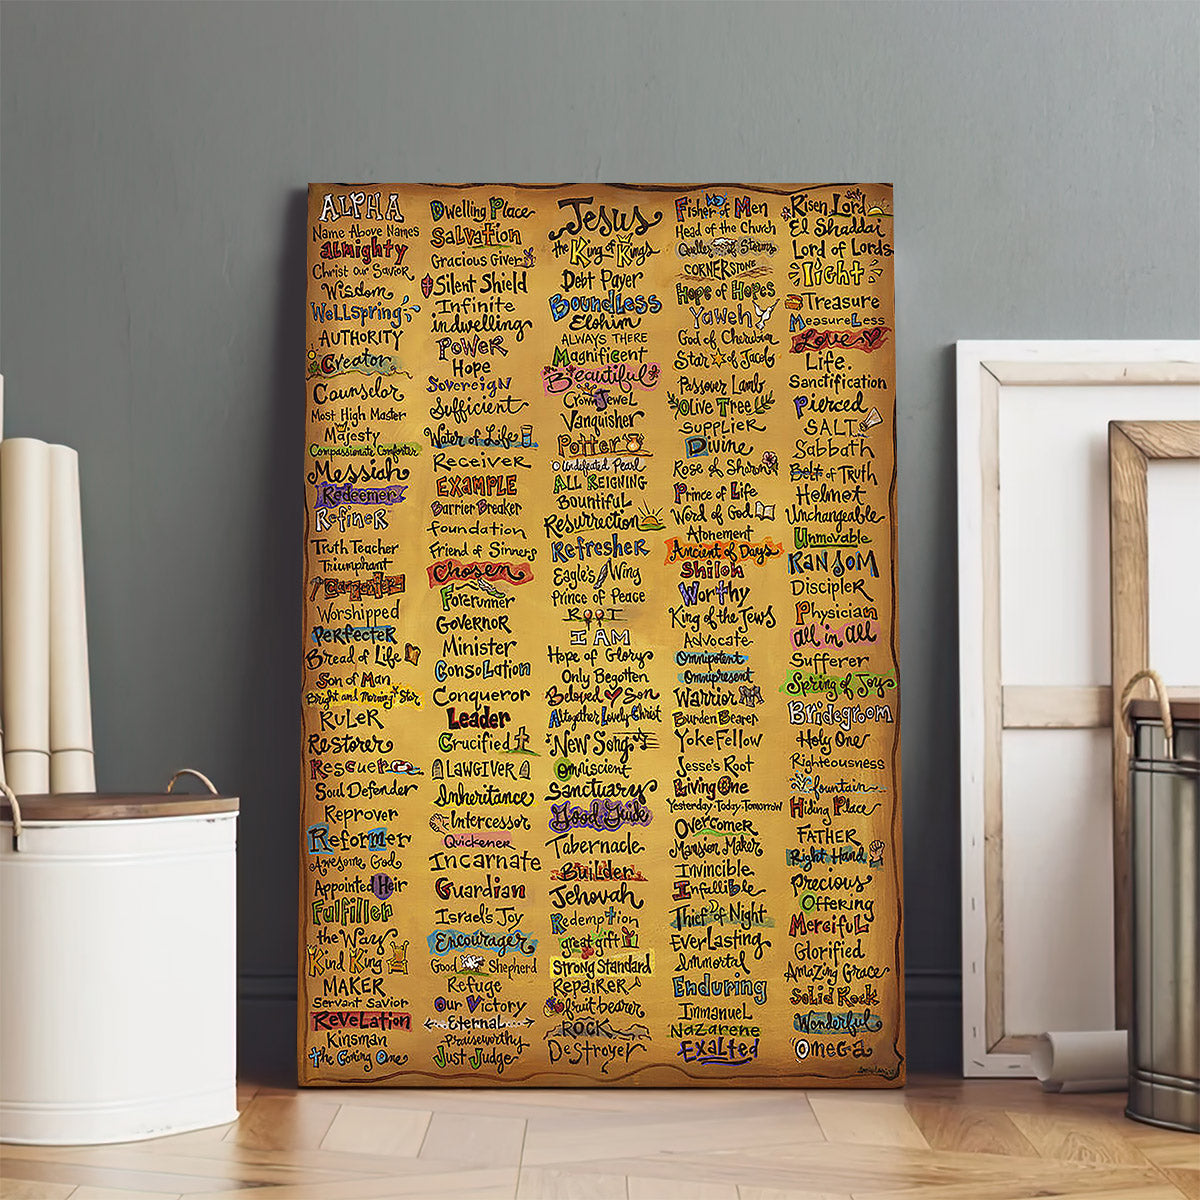 ALPHA
Name Above Names
almighty
Christ Our Savior
Wisdom
Wellspring
AUTHORITY
Creator
Counselor
Most High Master
Majesty
Compassionate Comforter
Messiah
Redeemer
Refiner
Truth Teacher
Triumphant
Carpenter
Worshipped
Perfecter
Bread of Life
Son of Man
Bright and Morning Star
RuLeR
Restorer
Rescuer
Soul Defender
Reprover
Reformer
Awesome God
Appointed Heir
Fulfiller
the Way
Kind King
MAKER
Servant Savior
Revelation
Kinsman
the Coming One
Dwelling Place
Salvation
Gracious Giver
Silent Shield
Infinite
indwelling
POWER
Hope
Sovereign
Sufficient
Water of Life
Receiver
EXAMPLE
Barrier Breaker
foundation
Friend of Sinners
Chosen
Forerunner
Governor
Minister
Consolation
Conqueror
Leader
Crucified
LAWGIVER
Inheritance
Intercessor
Quickener
Incarnate
Guardian
Israel's Joy
Encourager
Good Shepherd
Refuge
Our Victory
Eternal
Praiseworthy
Just Judge
Jesus
the King of Kings
Debt Payer
Boundless
Elohim
ALWAYS THERE
Magnificent
Beautiful
Crown Jewel
Vanquisher
Potter
Undefeated Pearl
ALL REIGNING
Bountiful
Resurrection
Refresher
Eagle's Wing
Prince of Peace
ROOT
I AM
Hope of Glory
Only Begotten
Beloved Son
Altogether Lovely Christ
New Song
Omniscient
Sanctuary
Good Guide
Tabernacle
Builder
Jehovah
Redemption
great gift
Strong Standard
Repairer
fruit-bearer
ROCK
Destroyer
Fisher of Men
Head of the Church
Queller of Storms
CORNERSTONE
Hope of Hopes
Yaweh
God of Cherubim
Star of Jacob
Passover Lamb
Olive Tree
SUPPLIER
Divine
Rose of Sharon
Prince of Life
Word of God
Atonement
Ancient of Days
Shiloh
Worthy
King of the Jews
Advocate
Omnipotent
Omnipresent
Warrior
Burden Bearer
Yoke Fellow
Jesse's Root
Living One
Yesterday-Today-Tomorrow
Overcomer
Mansion Maker
Invincible
Infallible
Thief of Night
Everlasting
Immortal
Enduring
Immanuel
Nazarene
Exalted
Risen Lord
El Shaddai
Lord of Lords
light
Treasure
Measureless
Love
Life
Sanctification
Pierced
SALT
Sabbath
Belt of Truth
Helmet
Unchangeable
Unmovable
RANSOM
Discipler
Physician
all in all
Sufferer
Spring of Joy
Bridegroom
Holy One
Righteousness
fountain
Hiding Place
FATHER
Right Hand
Precious
Offering
Merciful
Glorified
Amazing Grace
Solid Rock
Wonderful
Omega